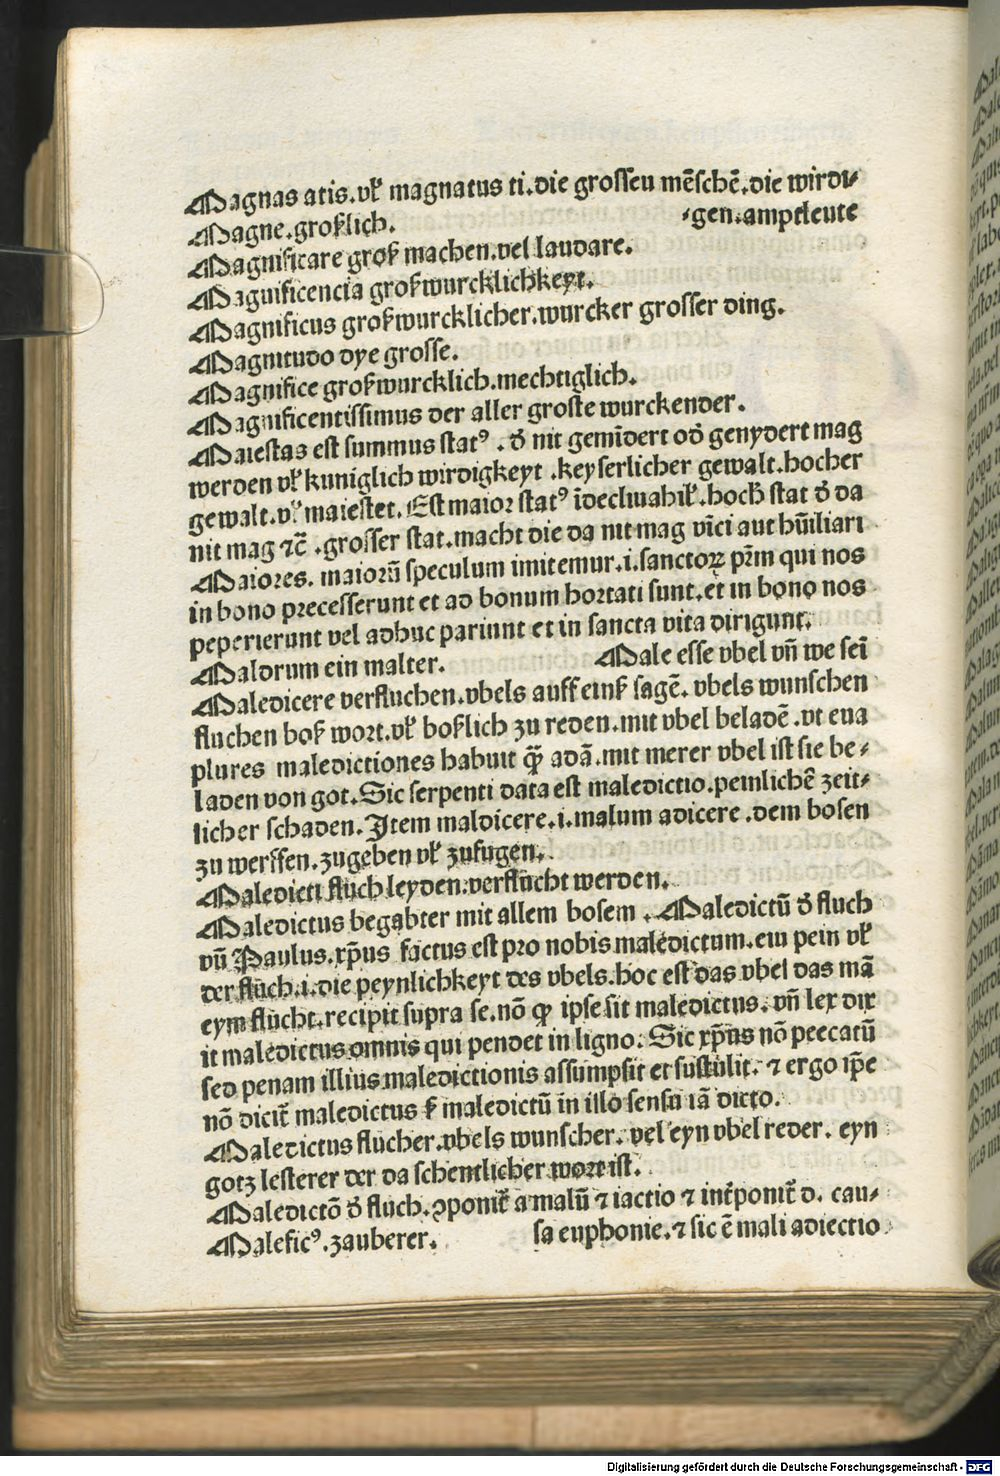 Magnas atis.vľ magnatus ti.die grossen mēschē.die wirdi⸗
Magne.groſslich. ⸗gen.amptleute
Magnificare groſs machen.vel laudare.
Magnificencia groſswurcklichkeyt.
Magnificus groſswurcklicher.wurcker grosser ding.
Magnitudo dye grosse.
Magnifice groſswurcklich.mechtiglich.
Magnificentissimus der aller groste wurckender.
Maiestas est summus statꝰ . d̄ nit gemīdert od̄ genydert mag
werden vľ kuniglich wirdigkeyt .keyserlicher gewalt.hocher
gewalt.vľ maiestet. Est maior statꝰ īdeclinabiľ.hoch stat d̄ da
nit mag ⁊c̄ .grosser stat.macht die da nit mag vīci aut hūiliari
Maiores. maiorū speculum imitemur.i.sanctoꝝ pr̄m qui nos
in bono precesserunt et ad bonum hortati sunt.et in bono nos
peperierunt vel adhuc pariunt et in sancta vita dirigunt.
Maldrum ein malter. Male esse vbel vn̄ we sei̅
Maledicere verfluchen.vbels auff einſs sagē. vbels wunschen
fluchen boſs wort.vľ boſslich zu reden.mit vbel beladē.vt eua
plures maledictiones habuit q̄ꝫ adā.mit merer vbel ist sie be⸗
laden von got.Sic serpenti data est maledictio.peinlichē zeit⸗
licher schaden.Item maldicere.i.malum adicere.dem bosen
zu werffen.zugeben vľ zufugen.
Maledici fluch leyden.verflucht werden.
Maledictus begabter mit allem bosem .Maledictū d̄ fluch
vn̄ Paulus.xp̄us factus est pro nobis maledictum.ein pein vľ
der fluch.i.die peynlichkeyt des vbels.hoc est das vbel das mā
eym flucht.recipit supra se.nō ꝙ ipse sit maledictus.vn̄ lex dix
it maledictus omnis qui pendet in ligno. Sic xp̄us nō peccatū
sed penam illius maledictionis assumpsit et sustulit. ⁊ ergo ip̄e
nō dicit̄ maledictus ſs maledictū in illo sensu iā dicto.
Maledictus flucher.vbels wunscher. vel eyn vbel reder. eyn
gotz lesterer der da schentlicher wort ist.
Maledictō d̄ fluch.ꝯponit̄ a malū ⁊ iactio ⁊ int̄ponit̄ d. cau⸗
Maleficꝰ.zauberer. sa euphonie.⁊ sic ē mali adiectio
Digitalisierung gefördert durch die Deutsche Forschungsgemeinschaft - DFG